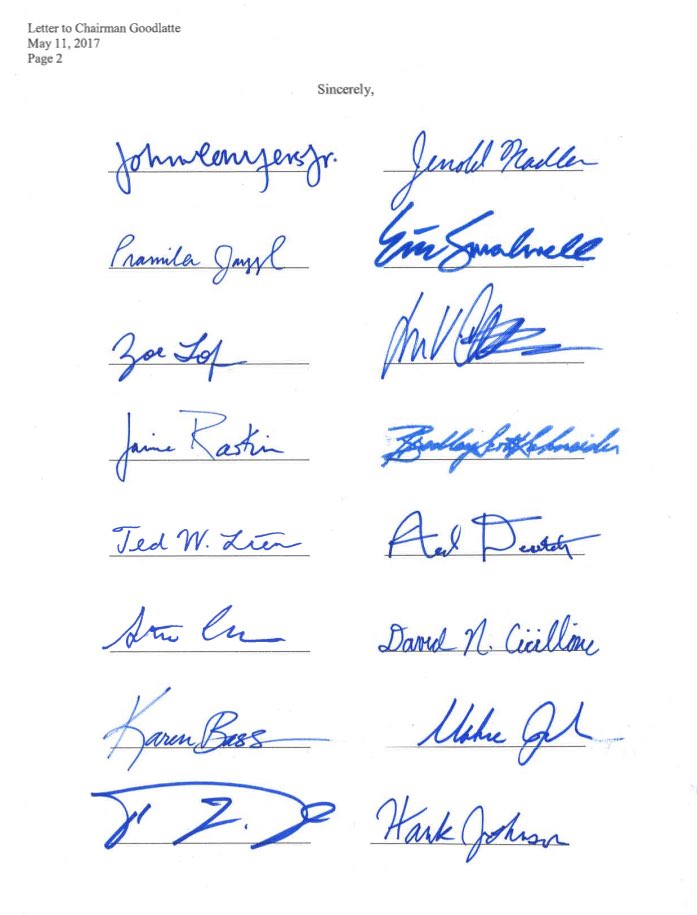 Letter to Chairman Goodlatte
May 11, 2017
Page 2
Sincerely,
John Conyers Jr.
Jerrold Nadler
Pramila
Eric Swalwell
Zoe Lof
Jamie Raskin
Bradley Scott Schneider
Ted W. Lieu
Ted Deutch
David N. Cicilline
Karen Bass
Hank Johnson